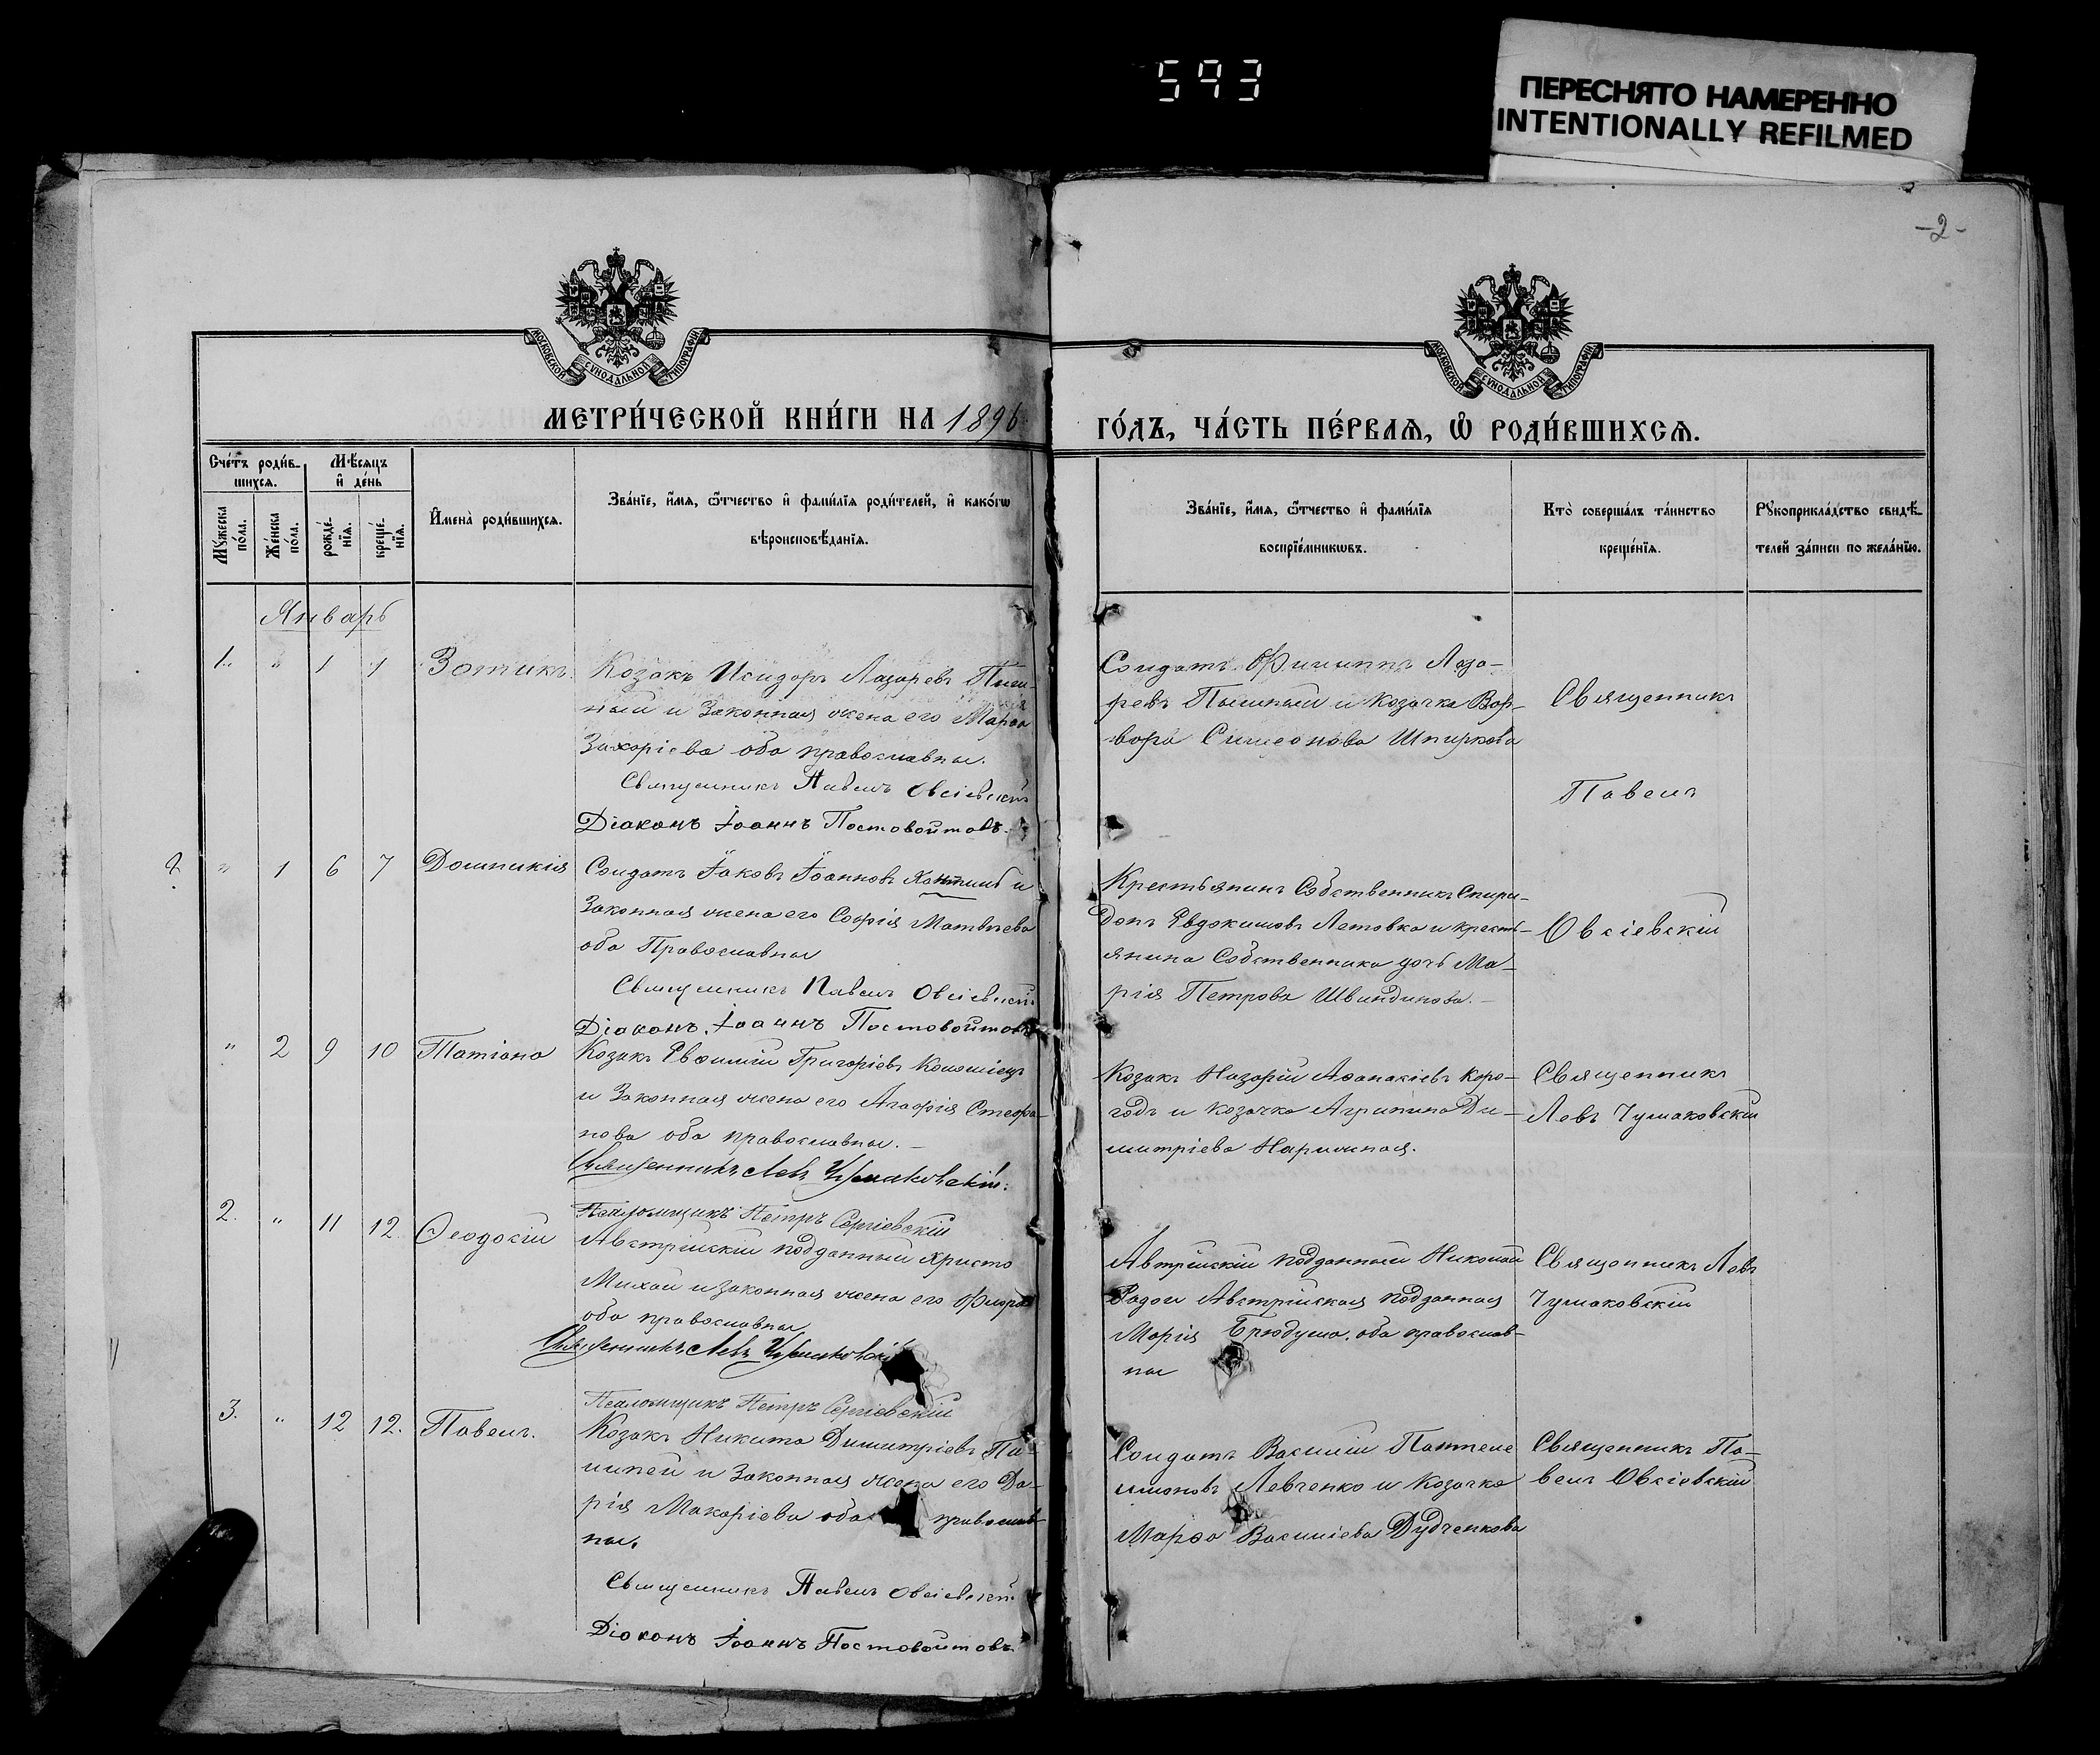 593
ПЕРЕСНЯТО НАМЕРЕННО
INTENTIONALLY REFILMED
-2-
МОСКОВСКОЙ СѴНОДАЛЬНОЙ ТИПОГРАФІИ
МОСКОВСКОЙ СѴНОДАЛЬНОЙ ТИПОГРАФІИ
МЕТРИ́ЧЕСКОЙ КНИ́ГИ НА 1896
ГО́ДЪ, ЧА́СТЬ ПЕ́РВАѦ, Ѡ РОДИ́ВШИХСѦ.
Сче́тъ роди́в-
шихсѧ.
Мѣ́сѧцъ
и де́нь
Мꙋ́жеска
по́ла.
Же́нска
по́ла.
рожде́-
нїѧ.
креще́-
нїѧ.
И҆мена̀ роди́вшихсѧ.
Зва́нїе, и҆́мѧ, ѻ҆́тчество и҆ фами́лїѧ роди́телей, и҆ како́гѡ
вѣроисповѣ́данїѧ.
Зва́нїе, и҆́мѧ, ѻ҆́тчество и҆ фами́лїѧ
воспрїе́мникѡвъ.
Кто̀ соверша́лъ та́инство
креще́нїѧ.
Рꙋкоприкла́дство свидѣ́-
телей за́писи по жела́нїю.
Январь
1. " 1 1 Зотикъ. Козакъ Исидоръ Лазаревъ Пыш-
ный и Законная жена его Марѳа
Захаріева оба православны.
Священникъ Павелъ Овсіевскій
Діаконъ Іоаннъ Постовойтовъ.
Солдатъ Филиппъ Лаза-
ревъ Пышный и козачка Вар-
вара Симеонова Шпиркова
Священникъ
Павелъ
Овсіевскій
2 " 1 6 7 Домникія Солдатъ Іаковъ Іоанновъ и
Законная жена его Софія Матвѣева
оба Православны
Священникъ Павелъ Овсіевскій
Діаконъ Іоаннъ Постовойтовъ
Крестьянинъ Собственникъ Спири-
донъ Евдокимовъ Летовка и кресть-
янина Собственника дочь Ма-
рія Петрова Швиндинова.
" 2 9 10 Татіана Козакъ Евѳимій Григоріевъ Коломіецъ
и Законная жена его Агафія Стефа-
нова оба православны.
Священникъ Левъ Чумаковскій.
Псаломщикъ Петръ Сергіевскій
Козакъ Назарій Аѳанасіевъ Коро-
годъ и козачка Агрипина Ди-
митріева Нарижная.
Священникъ
Левъ Чумаковскій
2. " 11 12. Ѳеодосій Австрійскій подданный Христо
Михай и законная жена его Флора
оба православны
Священникъ Левъ Чумаковскій
Псаломщикъ Петръ Сергіевскій
Австрійскій подданный Николай
Радои Австрійская подданная
Марія оба православ-
ны
Священникъ Левъ
Чумаковскій
3. " 12 12. Павелъ. Козакъ Никита Димитріевъ Па
липей и Законная жена его Да-
рія Макаріева оба православ-
ны.
Священникъ Павелъ Овсіевскій
Діаконъ Іоаннъ Постовойтовъ.
Солдатъ Василій Пантеле
имоновъ Левченко и козачка
Марѳа Василіева Дудченкова
Священникъ Па-
велъ Овсіевскій